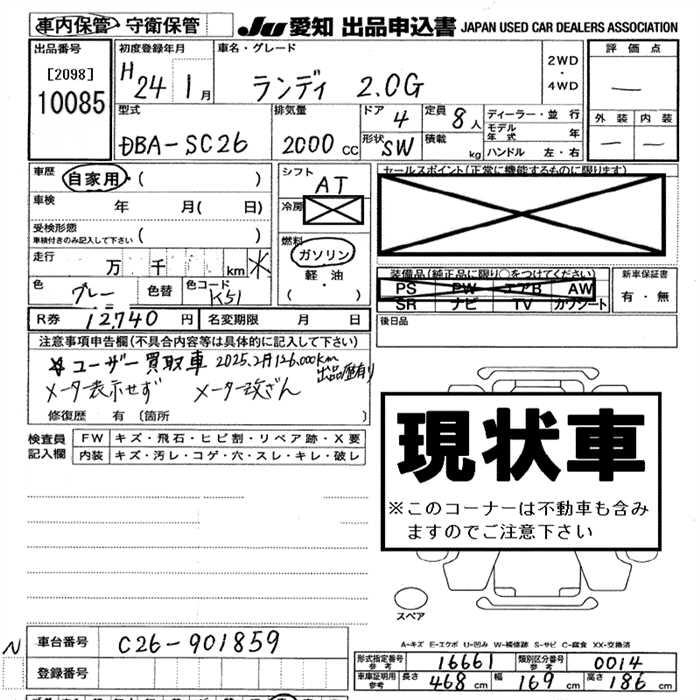 車内保管・守衛保管
JU 愛知 出品申込書 JAPAN USED CAR DEALERS ASSOCIATION
出品番号
[2098]
10085
初度登録年月
H24 1月
車名・グレード
ランディ 2.0G
2WD・4WD
評価点
―
外装 内装
― ―
型式
DBA-SC26
排気量
2000 CC
ドア 4
形状 SW
定員 8人
積載 kg
ディーラー・並行
モデル年式 年
ハンドル 左・右
車歴 自家用 ( )
車検 年 月( 日)
受検形態
車検付きのみ記入して下さい ( )
走行 万 千 km ※
色 グレー 色替 色コード K51
R券 12,740 円 名変期限 月 日
シフト AT
冷房
燃料 ガソリン
軽・油
( )
セールスポイント(正常に機能するものに限ります)
装備品(純正品に限り○をつけてください)
PS PW エアB AW
SR ナビ TV カワシート
新車保証書
有・無
後日品
注意事項申告欄(不具合内容等は具体的に記入して下さい)
☆ユーザー買取車 2025.2月126,000km
出品歴有り
メーター表示せず メーター改ざん
修復歴 有 〔箇所 〕
検査員記入欄
FW キズ・飛石・ヒビ割・リペア跡・X要
内装 キズ・汚レ・コゲ・穴・スレ・キレ・破レ
現状車
※このコーナーは不動車も含み
ますのでご注意下さい
スペア
A-キズ E-エクボ U-凹み W-補修跡 S-サビ C-腐食 XX-交換済
N
車台番号 C26-901859
登録番号
形式指定番号参考 16661 類別区分番号参考 0014
車庫証明用参考 長さ 468 cm 幅 169 cm 高さ 186 cm